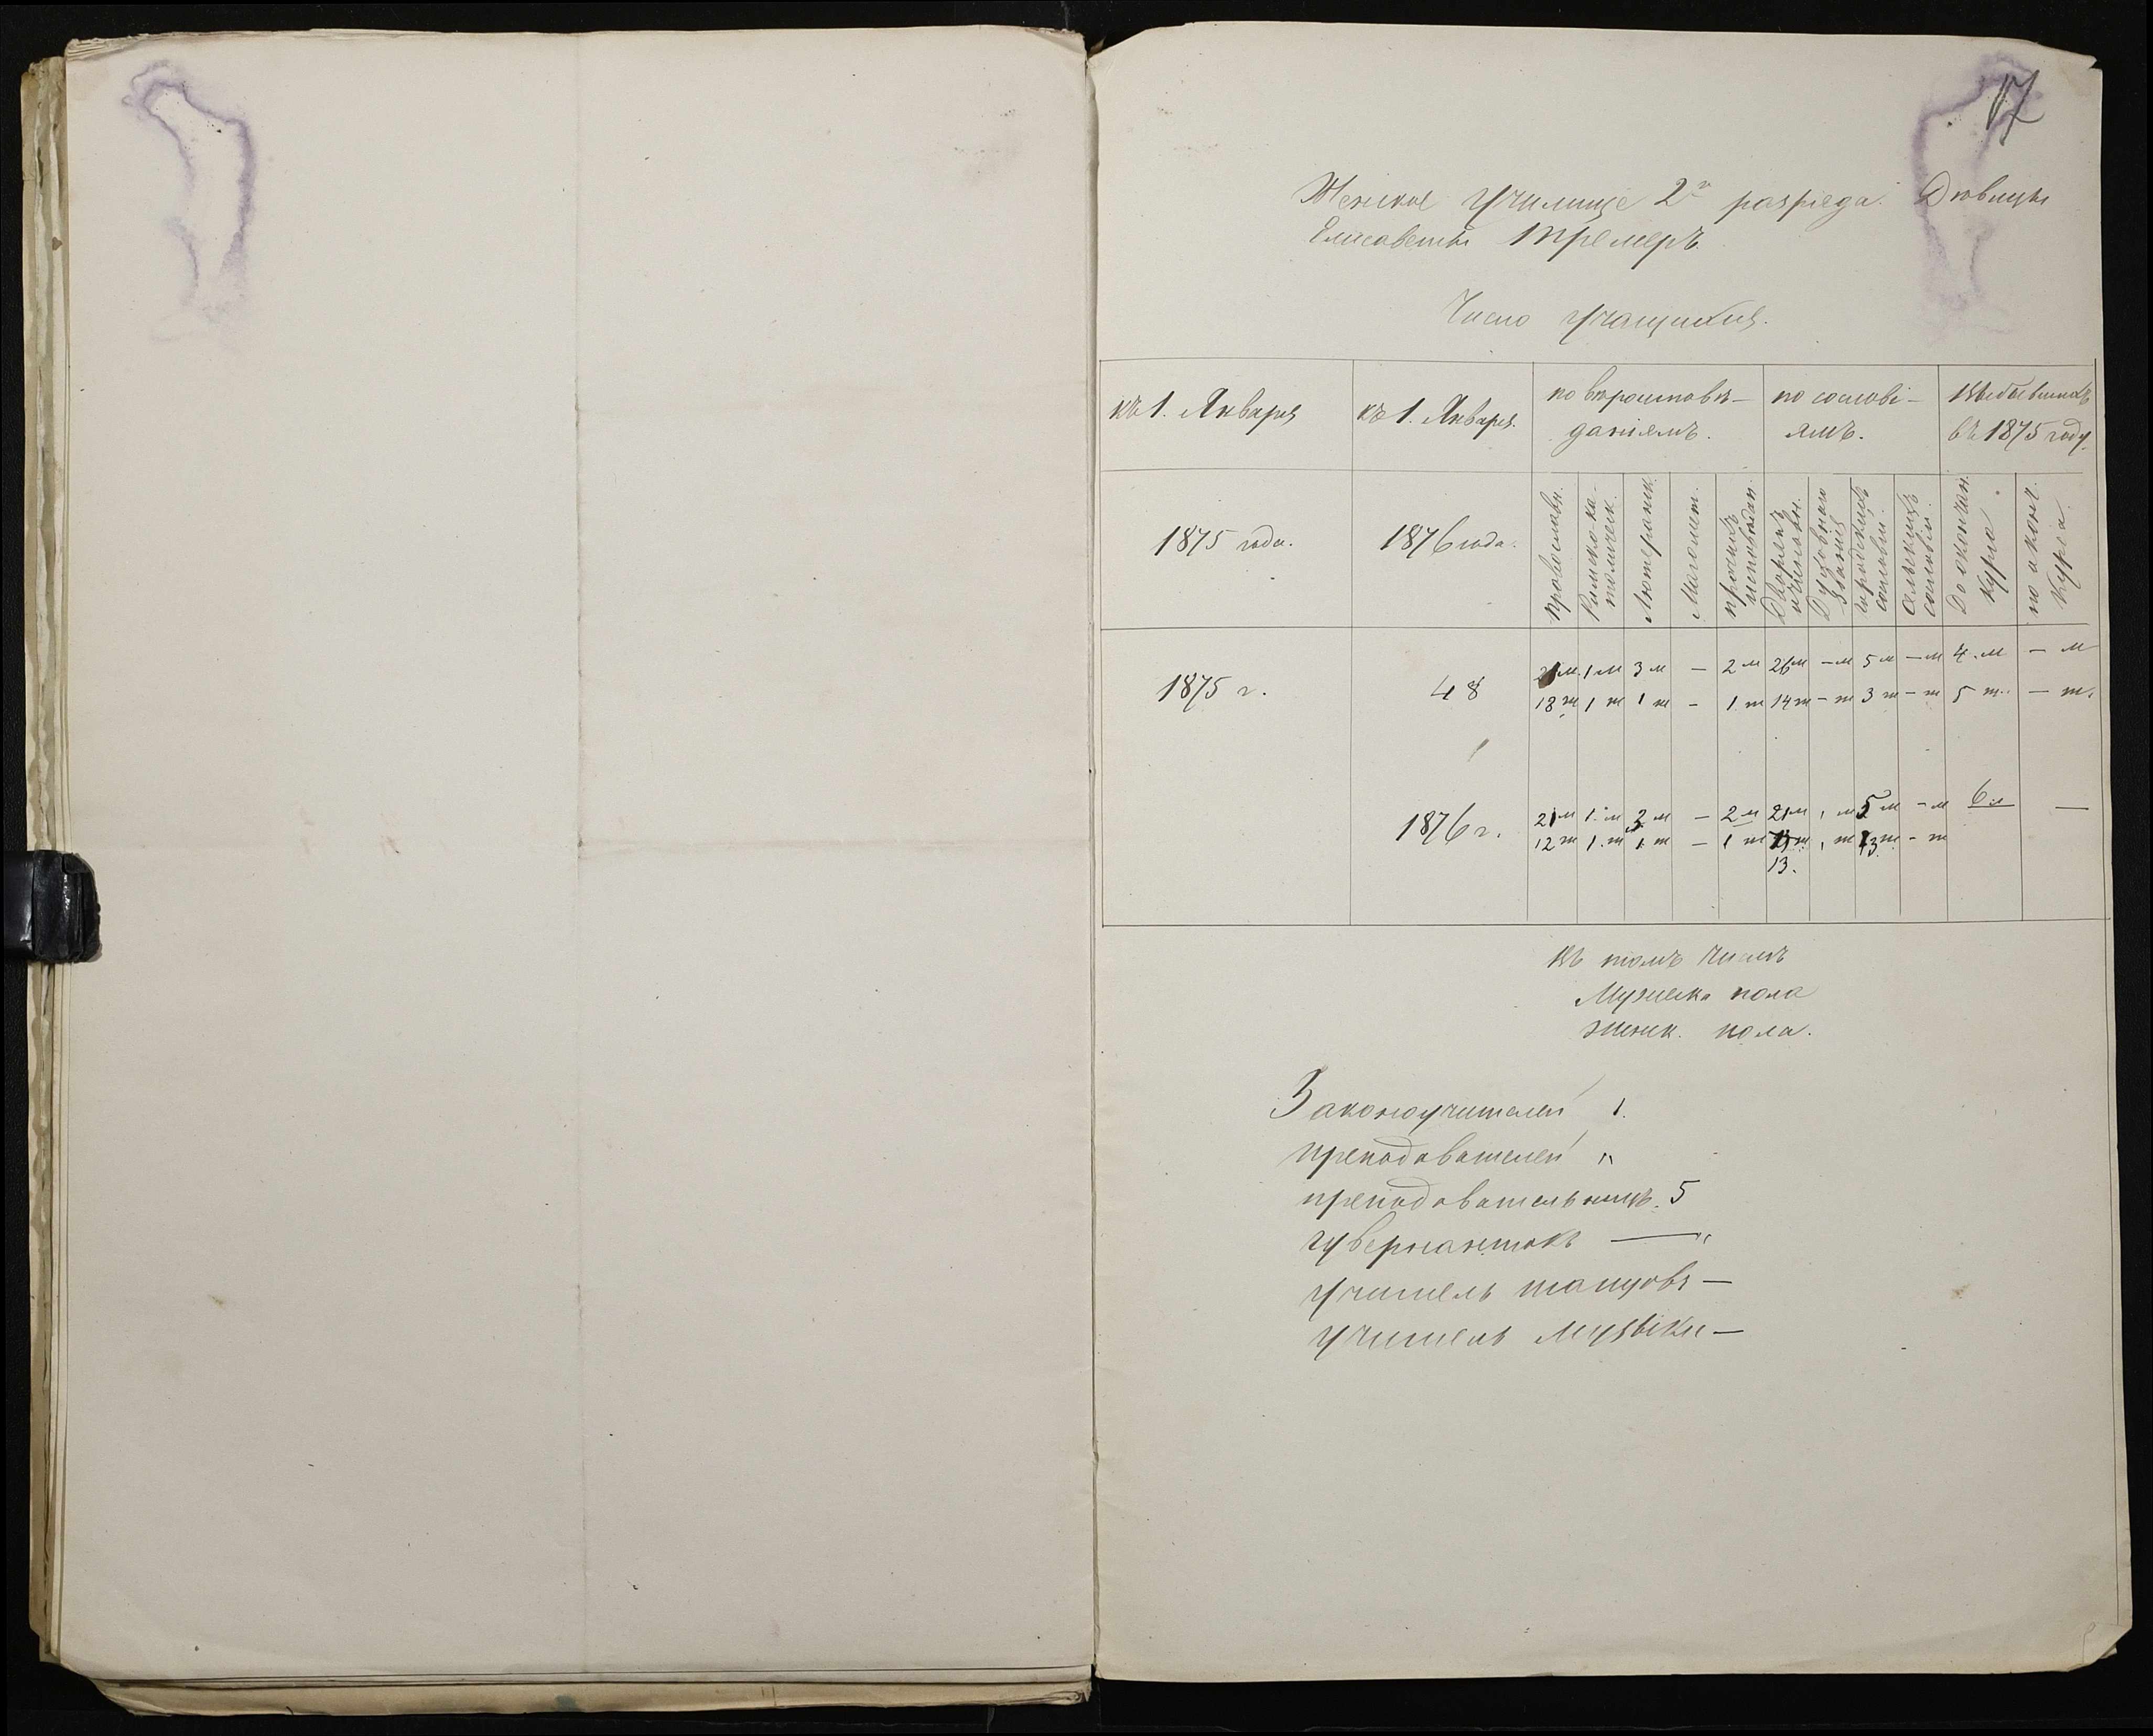 17
Женское училище 2го разряда. Дѣвицы
Елисаветы Тремеръ.
Число учащихся.
къ 1. Января 1875 года.
къ 1. Января 1876 года.
по вѣроисповѣ-
даніямъ.
по сослові-
ямъ.
Выбывшихъ
въ 1875 году.
Православн.
Римско-ка-
толическ.
Лютеранск.
Магомет.
прочихъ
исповѣдан.
Дворянъ
и чиновн.
Духовнаго
званія
городскихъ
сословій.
сельскихъ
сословій.
До окончан.
курса
по оконч.
курса.
1875 г. 48 м 1 м 3 м — 2 м 26 м — м 5 м — м 4. м — м
18 ж 1 ж 1 ж — 1 ж 14 ж — ж 3 ж — ж 5 ж. — ж.
1876 г. 21 м 1. м 3 м — 2 м 21 м , м 5 м — м 6 м —
12 ж 1. ж 1. ж — 1 ж ж , ж 3 ж — ж
13.
Въ томъ числѣ
Мужеска пола
женск. пола.
Законоучителей 1.
преподавателей "
преподавательницъ. 5
гувернантокъ — "
Учитель танцовъ —
учитель музыки —